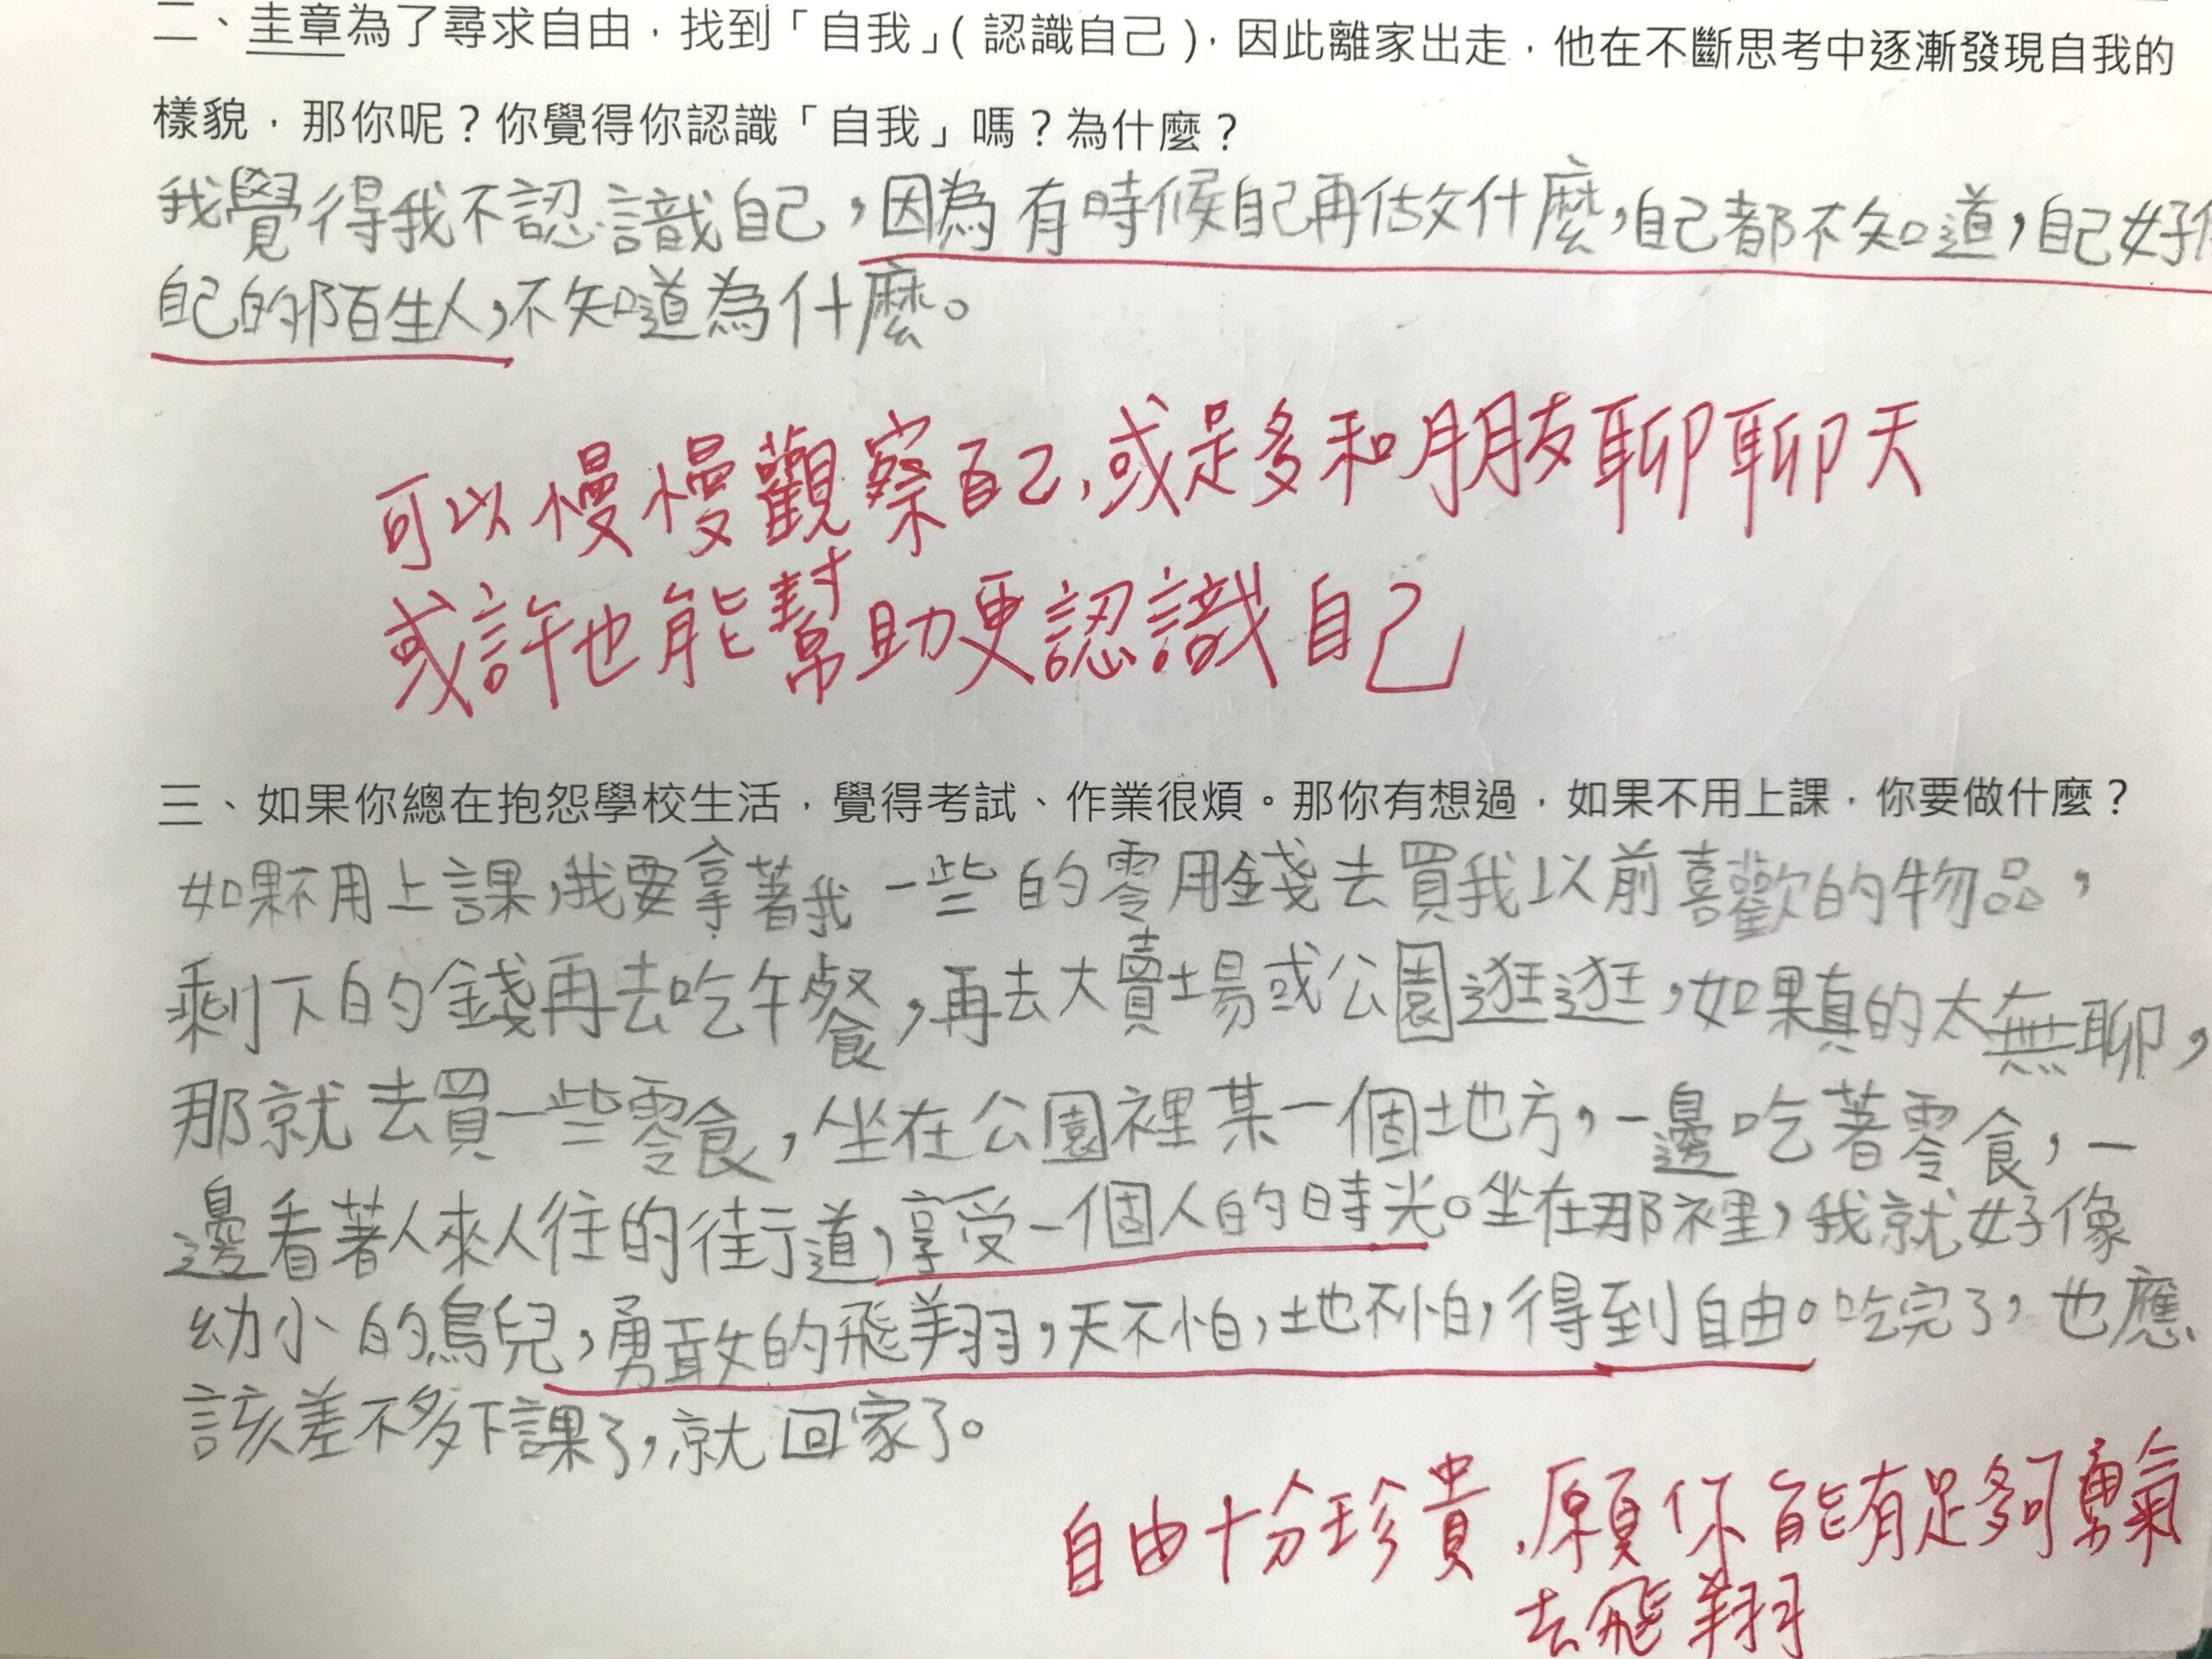 二、圭章為了尋求自由，找到「自我」（認識自己），因此離家出走，他在不斷思考中逐漸發現自我的
樣貌，那你呢？你覺得你認識「自我」嗎？為什麼？
我覺得我不認識自己，因為有時候自己再做什麼，自己都不知道，自己好
自己的陌生人，不知道為什麼。
可以慢慢觀察自己，或是多和朋友聊聊天
或許也能幫助更認識自己
三、如果你總在抱怨學校生活，覺得考試、作業很煩。那你有想過，如果不用上課，你要做什麼？
如果不用上課，我要拿著我一些的零用錢去買我以前喜歡的物品，
剩下的錢再去吃午餐，再去大賣場或公園逛逛，如果真的太無聊，
那就去買一些零食，坐在公園裡某一個地方，一邊吃著零食，一
邊看著人來人往的街道，享受一個人的時光。坐在那裡，我就好像
幼小的鳥兒，勇敢的飛翔，天不怕，地不怕，得到自由。吃完了，也應
該差不多下課了，就回家了。
自由十分珍貴，願你能有足夠勇氣
去飛翔